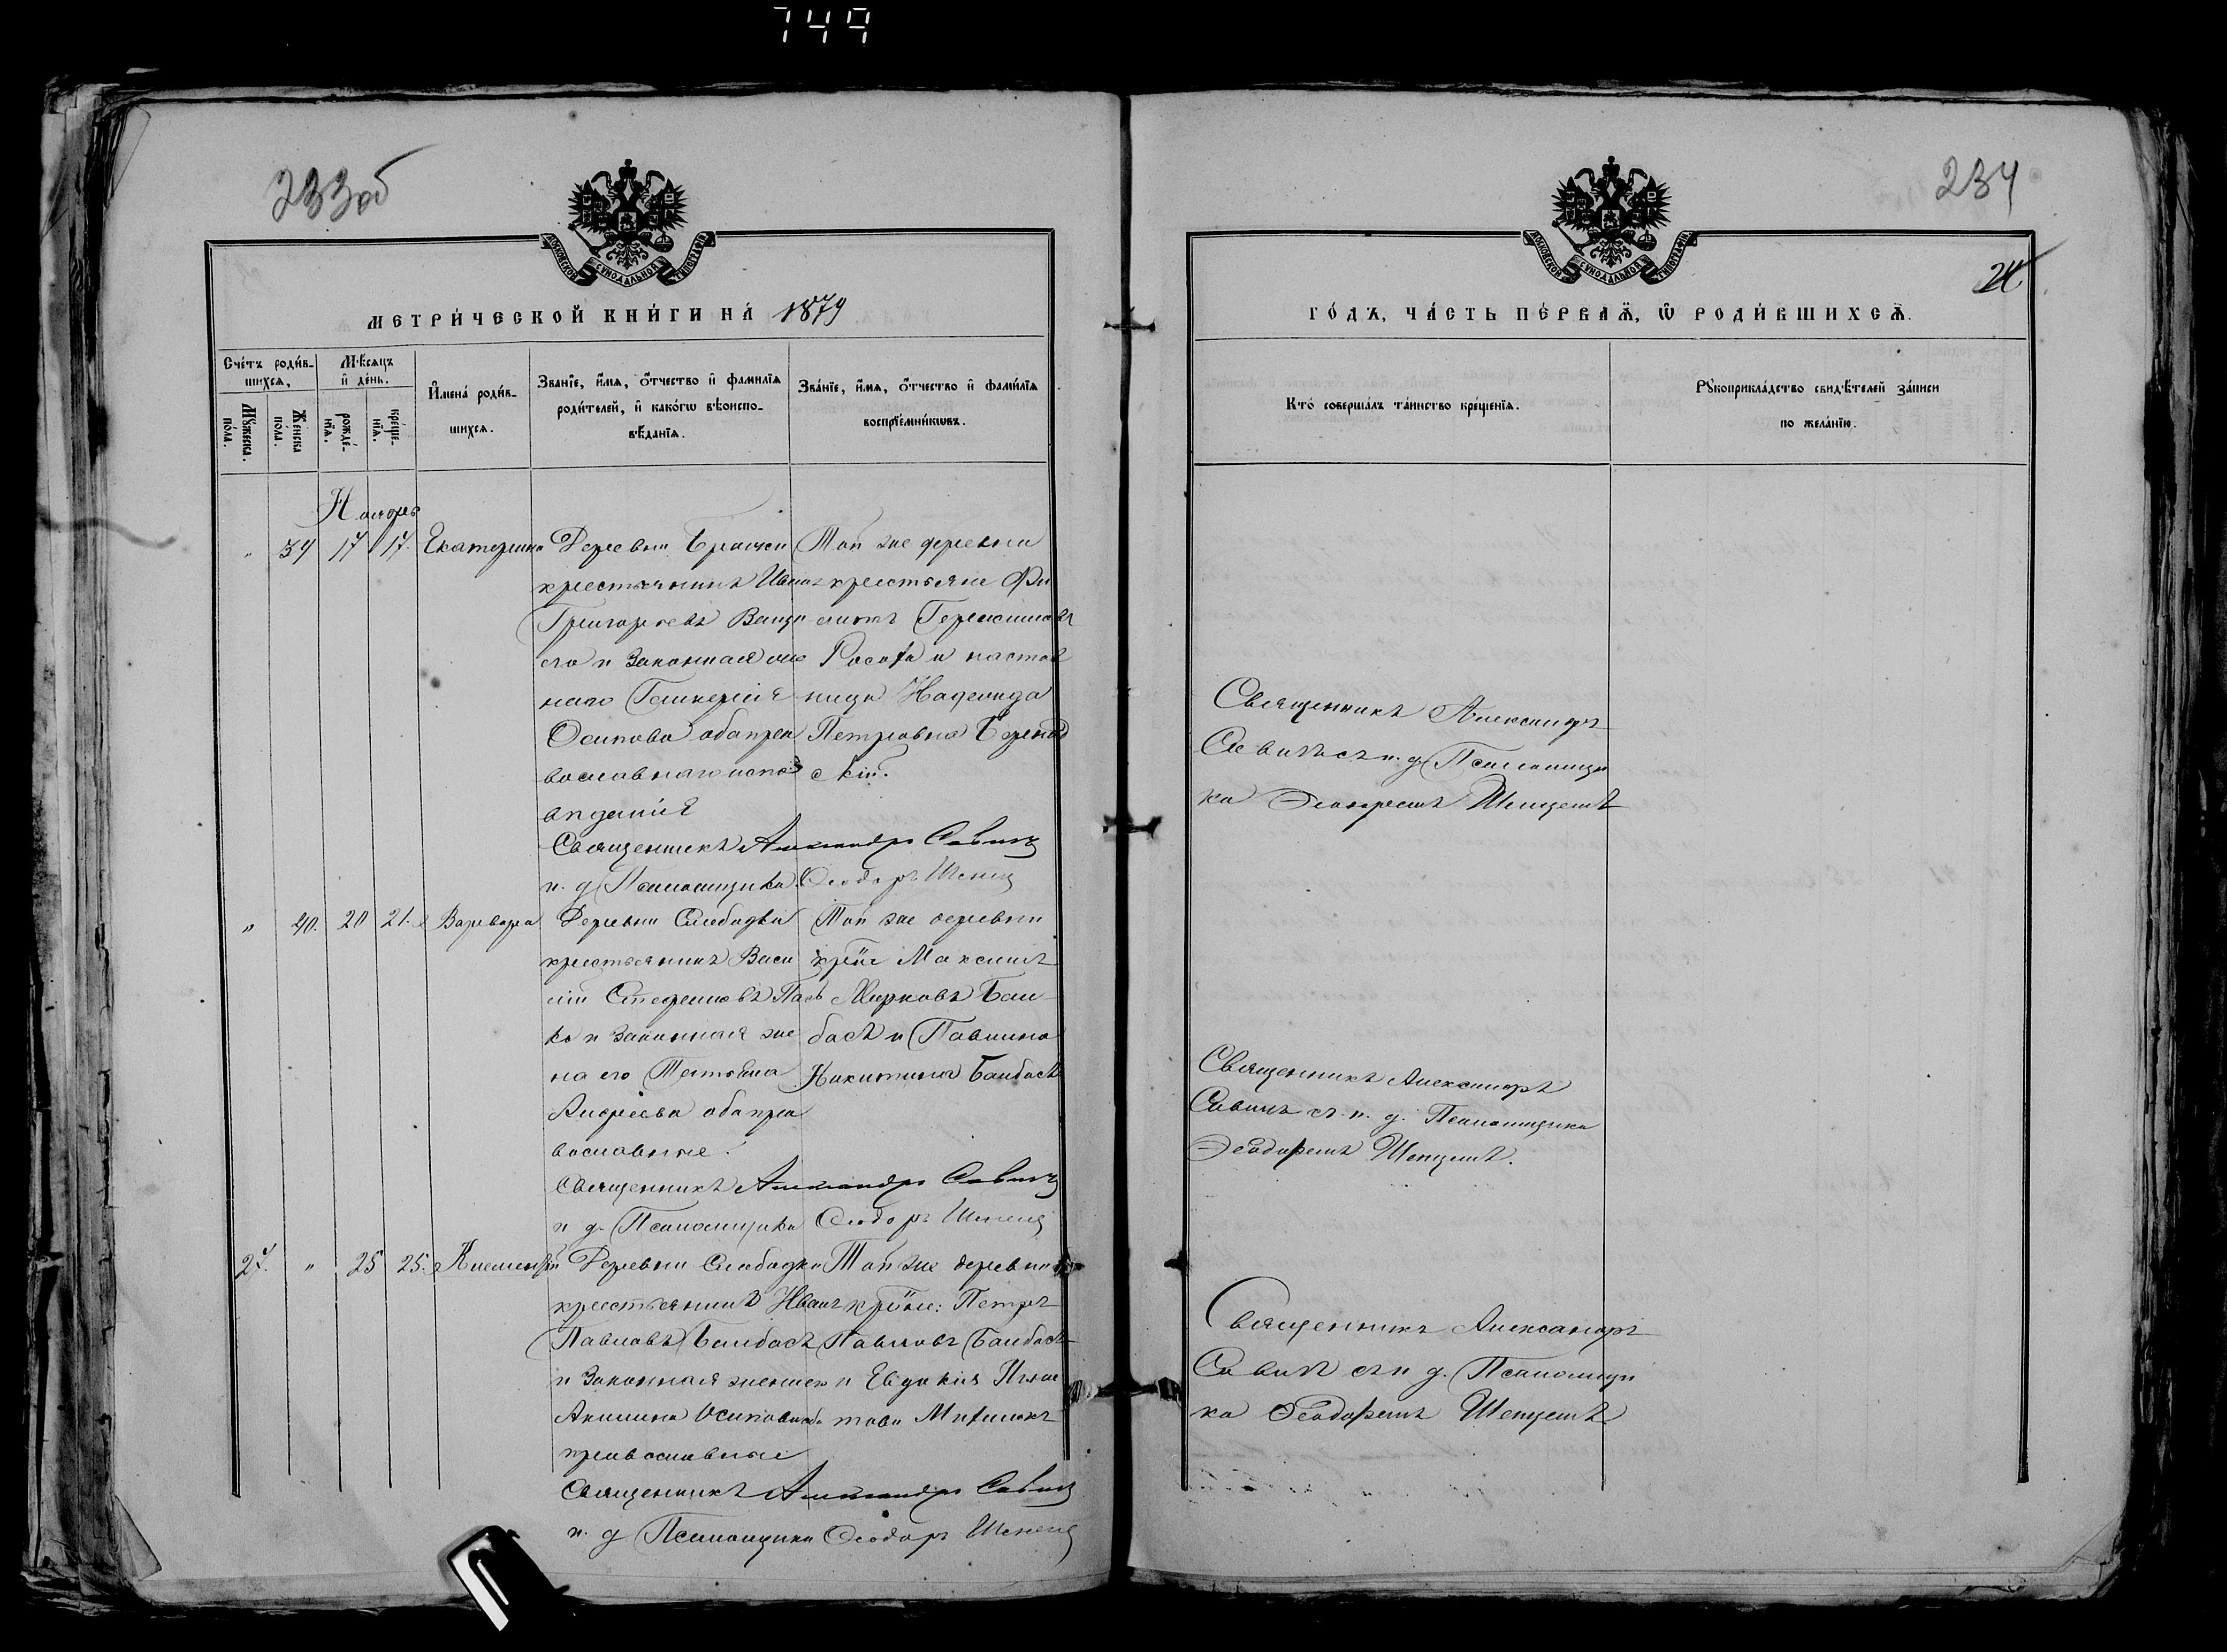 749
233об
МОСКОВСКОЙ СѴНОДАЛЬНОЙ ТИПОГРАФІИ
МЕТРИ́ЧЕСКОЙ КНИ́ГИ НА́ 1879
Сче́тъ роди́вшихся,
Мꙋ́жеска по́ла.
Же́нска по́ла.
Мѣ́сяцъ и҆ де́нь.
рожде́нїя.
креще́нїя.
И҆мена̀ роди́вшихся.
Зва́нїе, и҆́мя, ѻ҆́тчество и҆ фами́лїя
роди́телей, и҆ како́гѡ вѣроиспо-
вѣ́данїя.
Зва́нїе, и҆́мя, ѻ҆́тчество и҆ фами́лїя
воспрїе́мникѡвъ.
Ноябрь
" 39 17 17. Екатерина
Деревни
крестьянинъ Иванъ
Григорьевъ
его и законная
Гликерія
Осипова оба пра
вославнаго испо
вѣданія
Той же деревни
крестьяне Фи
липпъ Герасимовъ
и настав
ница Надежда
Петровна
скій.
Священникъ Александръ Савичъ
и. д. Псаломщика Ѳеодоръ Шепец
" 40. 20 21. Варвара
Деревни Слободки
крестьянинъ Васи
лій Стефановъ Пав
ко и законная же
на его Татьяна
Андреева оба пра
вославные.
Той же деревни
крѣне Максимъ
Марковъ Бай-
басъ и Павлина
Никитина Байбасъ
Священникъ Александръ Савичъ
и д. Псаломщика Ѳеодоръ Шепец
27. " 25 25. Климентій
Деревни Слободки
крестьянинъ Иванъ
Павловъ Байбасъ
и законная жена его
Акилина Осипова оба
православные
Той же деревни
крѣне: Петръ
Павловъ Байбасъ
и Евдокія Игна
това
Священникъ Александръ Савичъ
и. д. Псаломщика Ѳеодоръ Шепец
234
24
МОСКОВСКОЙ СѴНОДАЛЬНОЙ ТИПОГРАФІИ
ГО́ДЪ, ЧА́СТЬ ПЕ́РВАЯ, Ѽ РОДИ́ВШИХСЯ.
Кто̀ соверша́лъ та́инство креще́нїя.
Рꙋкоприкла́дство свидѣ́телей за́писи
по жела́нїю.
Священникъ Александръ
Савичъ съ и. д. Псаломщи
ка Ѳеодоромъ Шепцемъ
Священникъ Александръ
Савичъ съ и. д. Псаломщика
Ѳеодоромъ Шепцемъ.
Священникъ Александръ
Савичъ съ и д. Псаломщи
ка Ѳеодоромъ Шепцемъ